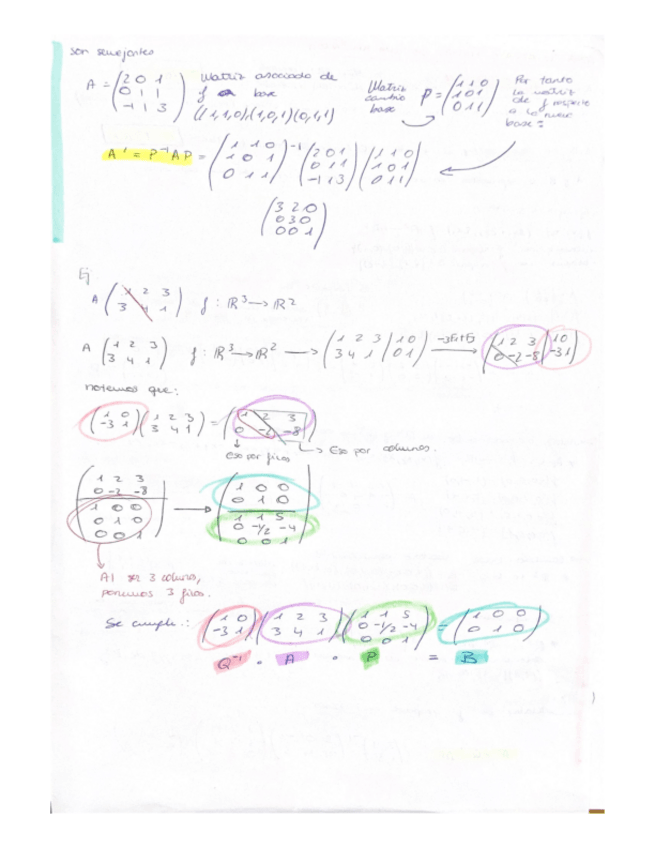 son semejantes
A = (2 0 1 / 0 1 1 / -1 1 3) Matriz asociada de f base ((1,1,0),(1,0,1)(0,1,1)
Matriz cambio base P = (1 1 0 / 1 0 1 / 0 1 1) Por tanto la matriz de f respecto a la nueva base:
A' = P⁻¹AP = (1 1 0 / 1 0 1 / 0 1 1)⁻¹ (2 0 1 / 0 1 1 / -1 1 3) (1 1 0 / 1 0 1 / 0 1 1)
(3 2 0 / 0 3 0 / 0 0 1)
Ej
A (1 2 3 / 3 4 1) f: ℝ³→ℝ²
A (1 2 3 / 3 4 1) f: ℝ³→ℝ² → (1 2 3 | 1 0 / 3 4 1 | 0 1) → (1 2 3 | 1 0 / 0 -2 -8 | -3 1)
notemos que:
(1 0 / -3 1)(1 2 3 / 3 4 1) = (1 2 3 / 0 -2 -8)
Esc por filas
Esc por columnas.
(1 2 3 / 0 -2 -8 / 1 0 0 / 0 1 0 / 0 0 1) → (1 0 0 / 0 1 0 / 1 1 5 / 0 -1/2 -4 / 0 0 1)
Al ser 3 columnas,
ponemos 3 filas.
Se cumple: (1 0 / -3 1)(1 2 3 / 3 4 1)(1 1 5 / 0 -1/2 -4 / 0 0 1) = (1 0 0 / 0 1 0)
Q⁻¹ · A · P = B